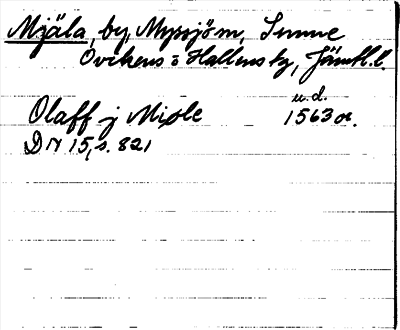 Mjäla, by, Myssjöm, Sunne
Ovikens o Hallens ky, Jämtl. l.
u. d.
Olaff j Miøle 1563 or.
DN 15, s. 821